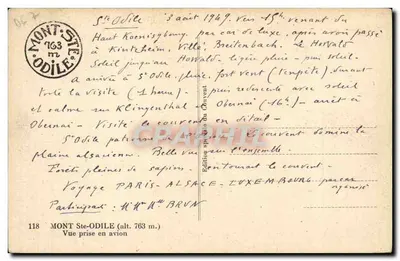 Ste Odile 3 août 1949. Vers 15h, venant du
Haut Koenigsbourg, par car de luxe, après avoir passé
à Kintzheim, Villé, Breitenbach. Le Hohwald
Soleil jusqu'au Howald, ligère pluie - puis soleil.
MONT STE ODILE
763
m
A arrivé à St Odile, pluie, fort vent (tempête), durant
toute la visite (1 heure) puis redescente avec soleil
et calme sur Klingenthal et Obernai (16h) arrêt à
Obernai - Visité le couvent en détail -
St Odile patronne domine la
plaine alsacienne. Belle vue sur l'ensemble.
Forêts pleines de sapins entourant le couvent.
Voyage PARIS - ALSACE - LUXEMBOURG par car
organisé
Participait : Mr Me BRUN
Edition spéciale du Couvent
118 MONT Ste-ODILE (alt. 763 m.)
Vue prise en avion
CPARAMA